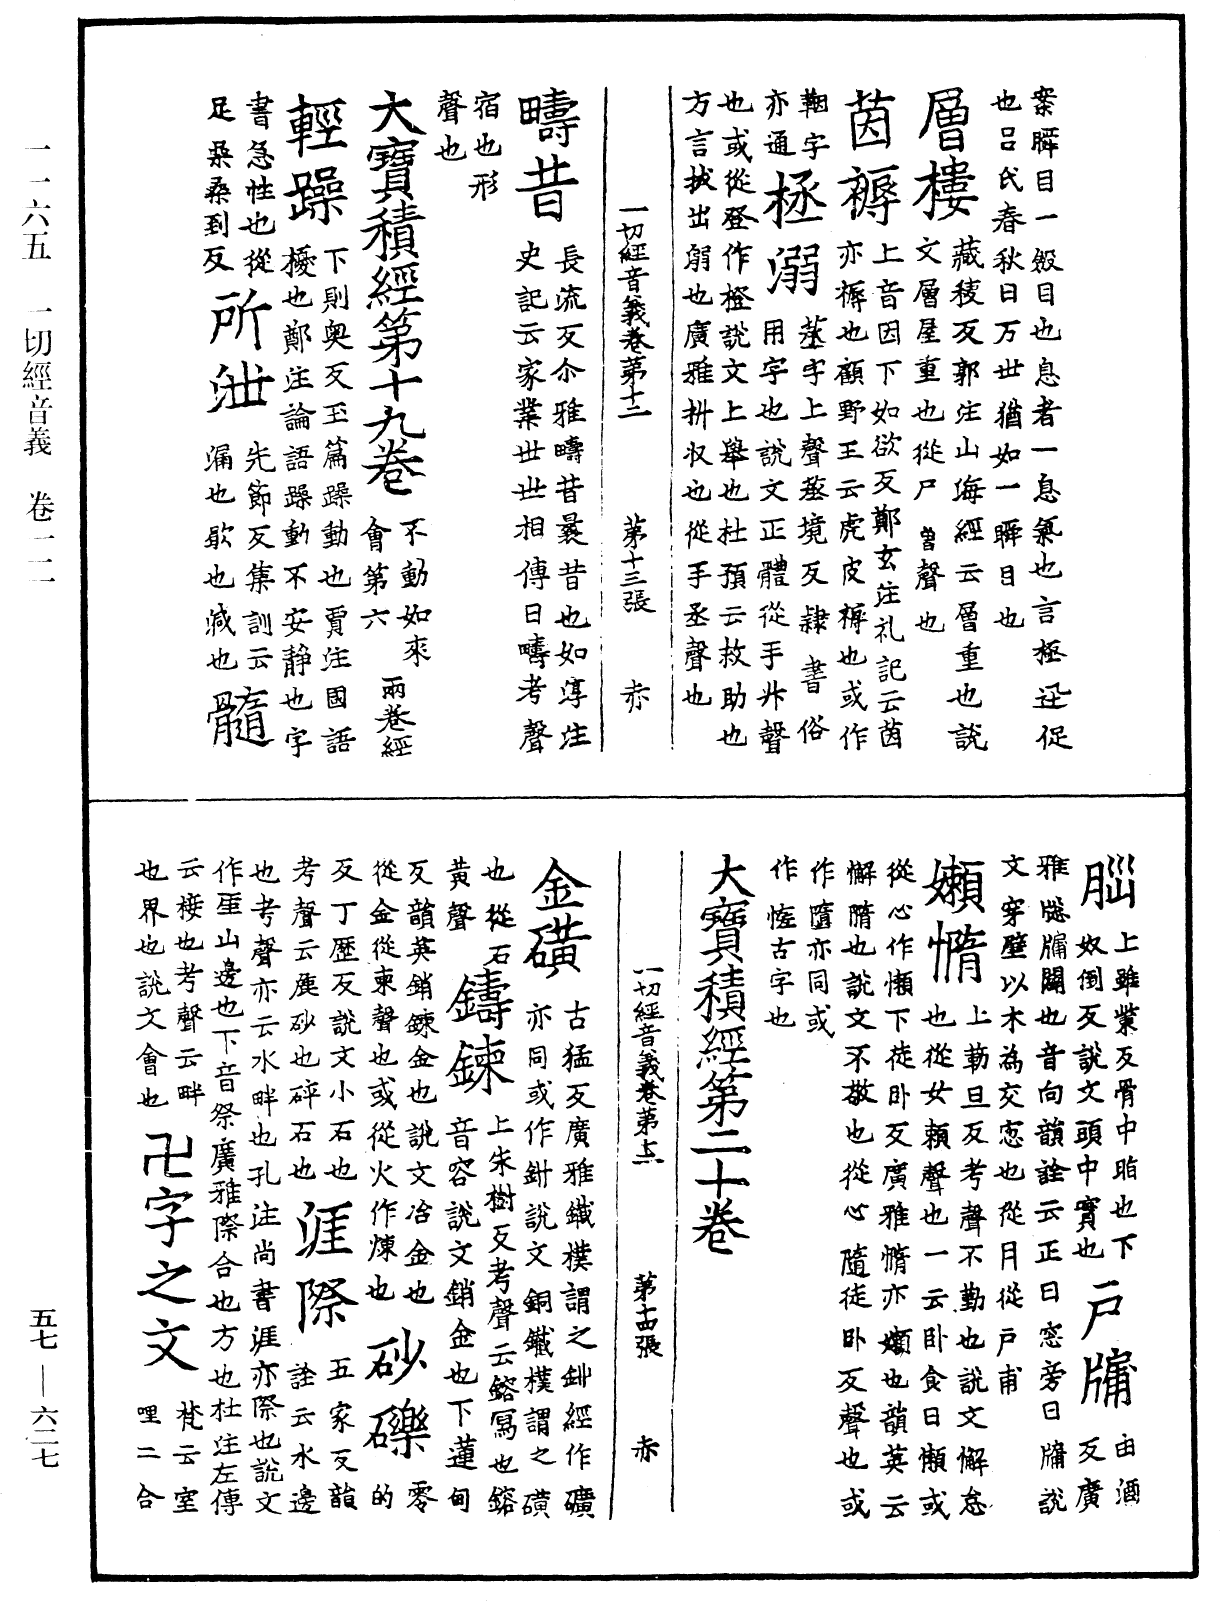 案瞬目一斂目也息者一息氣也言極迅促
也吕氏春秋曰万世猶如一瞬目也
層樓 藏稜反郭注山海經云層重也說
文層屋重也從尸曾聲也
茵褥 上音因下如欲反鄭玄注礼記云茵
亦褥也顧野王云虎皮褥也或作
鞇字亦通 拯溺 蒸字上聲蒸境反隷書俗
用字也說文正體從手廾聲
也或從登作橙說文上舉也杜預云救助也
方言拔出溺也廣雅抍収也從手丞聲也
一切經音義卷第十二 第十三張 赤
疇昔 長流反尒雅疇昔曩昔也如淳注
史記云家業世世相傳曰疇考聲
宿也形
聲也
大寶積經第十九卷 不動如來會第六 兩卷經
輕躁 下則奥反玉篇躁動也賈注國語
擾也鄭注論語躁動不安静也字
書急性也從
足喿喿到反 所泄 先節反集訓云
漏也歇也減也 髓
腦 上雖紫反骨中脂也下
奴倒反說文頭中寳也 戸牖 由酒
反廣
雅牕牖闢也音向韻詮云正曰窓旁曰牖說
文穿壁以木為交窓也從片從戸甫
嬾惰 上勒旦反考聲不勤也說文懈怠
也從女頼聲也一云卧食曰懶或
從心作懶下徒卧反廣雅惰亦嬾也韻英云
懈惰也說文不敬也從心隨徒卧反聲也或
作隨亦同或
作惰古字也
大寶積經第二十卷
一切經音義卷第十二 第十四張 赤
金礦 古猛反廣雅鐵樸謂之鉚經作礦
亦同或作釙說文銅鐵樸謂之磺
也從石
黄聲 鑄鍊 上朱樹反考聲云鎔冩也鎔
音容說文銷金也下蓮甸
反韻英銷鍊金也說文冶金也
從金從柬聲也或從火作煉也 砂礫 零
的
反丁歷反說文小石也
考聲云麁砂也碎石也 涯際 五家反韻
詮云水邊
也考聲亦云水畔也孔注尚書涯亦際也說文
作厓山邊也下音祭廣雅際合也方也杜注左傳
云接也考聲云畔
也界也說文會也 卍字之文 梵云室
哩二合
一一六五 一切經音義 卷一二
五七—六二七